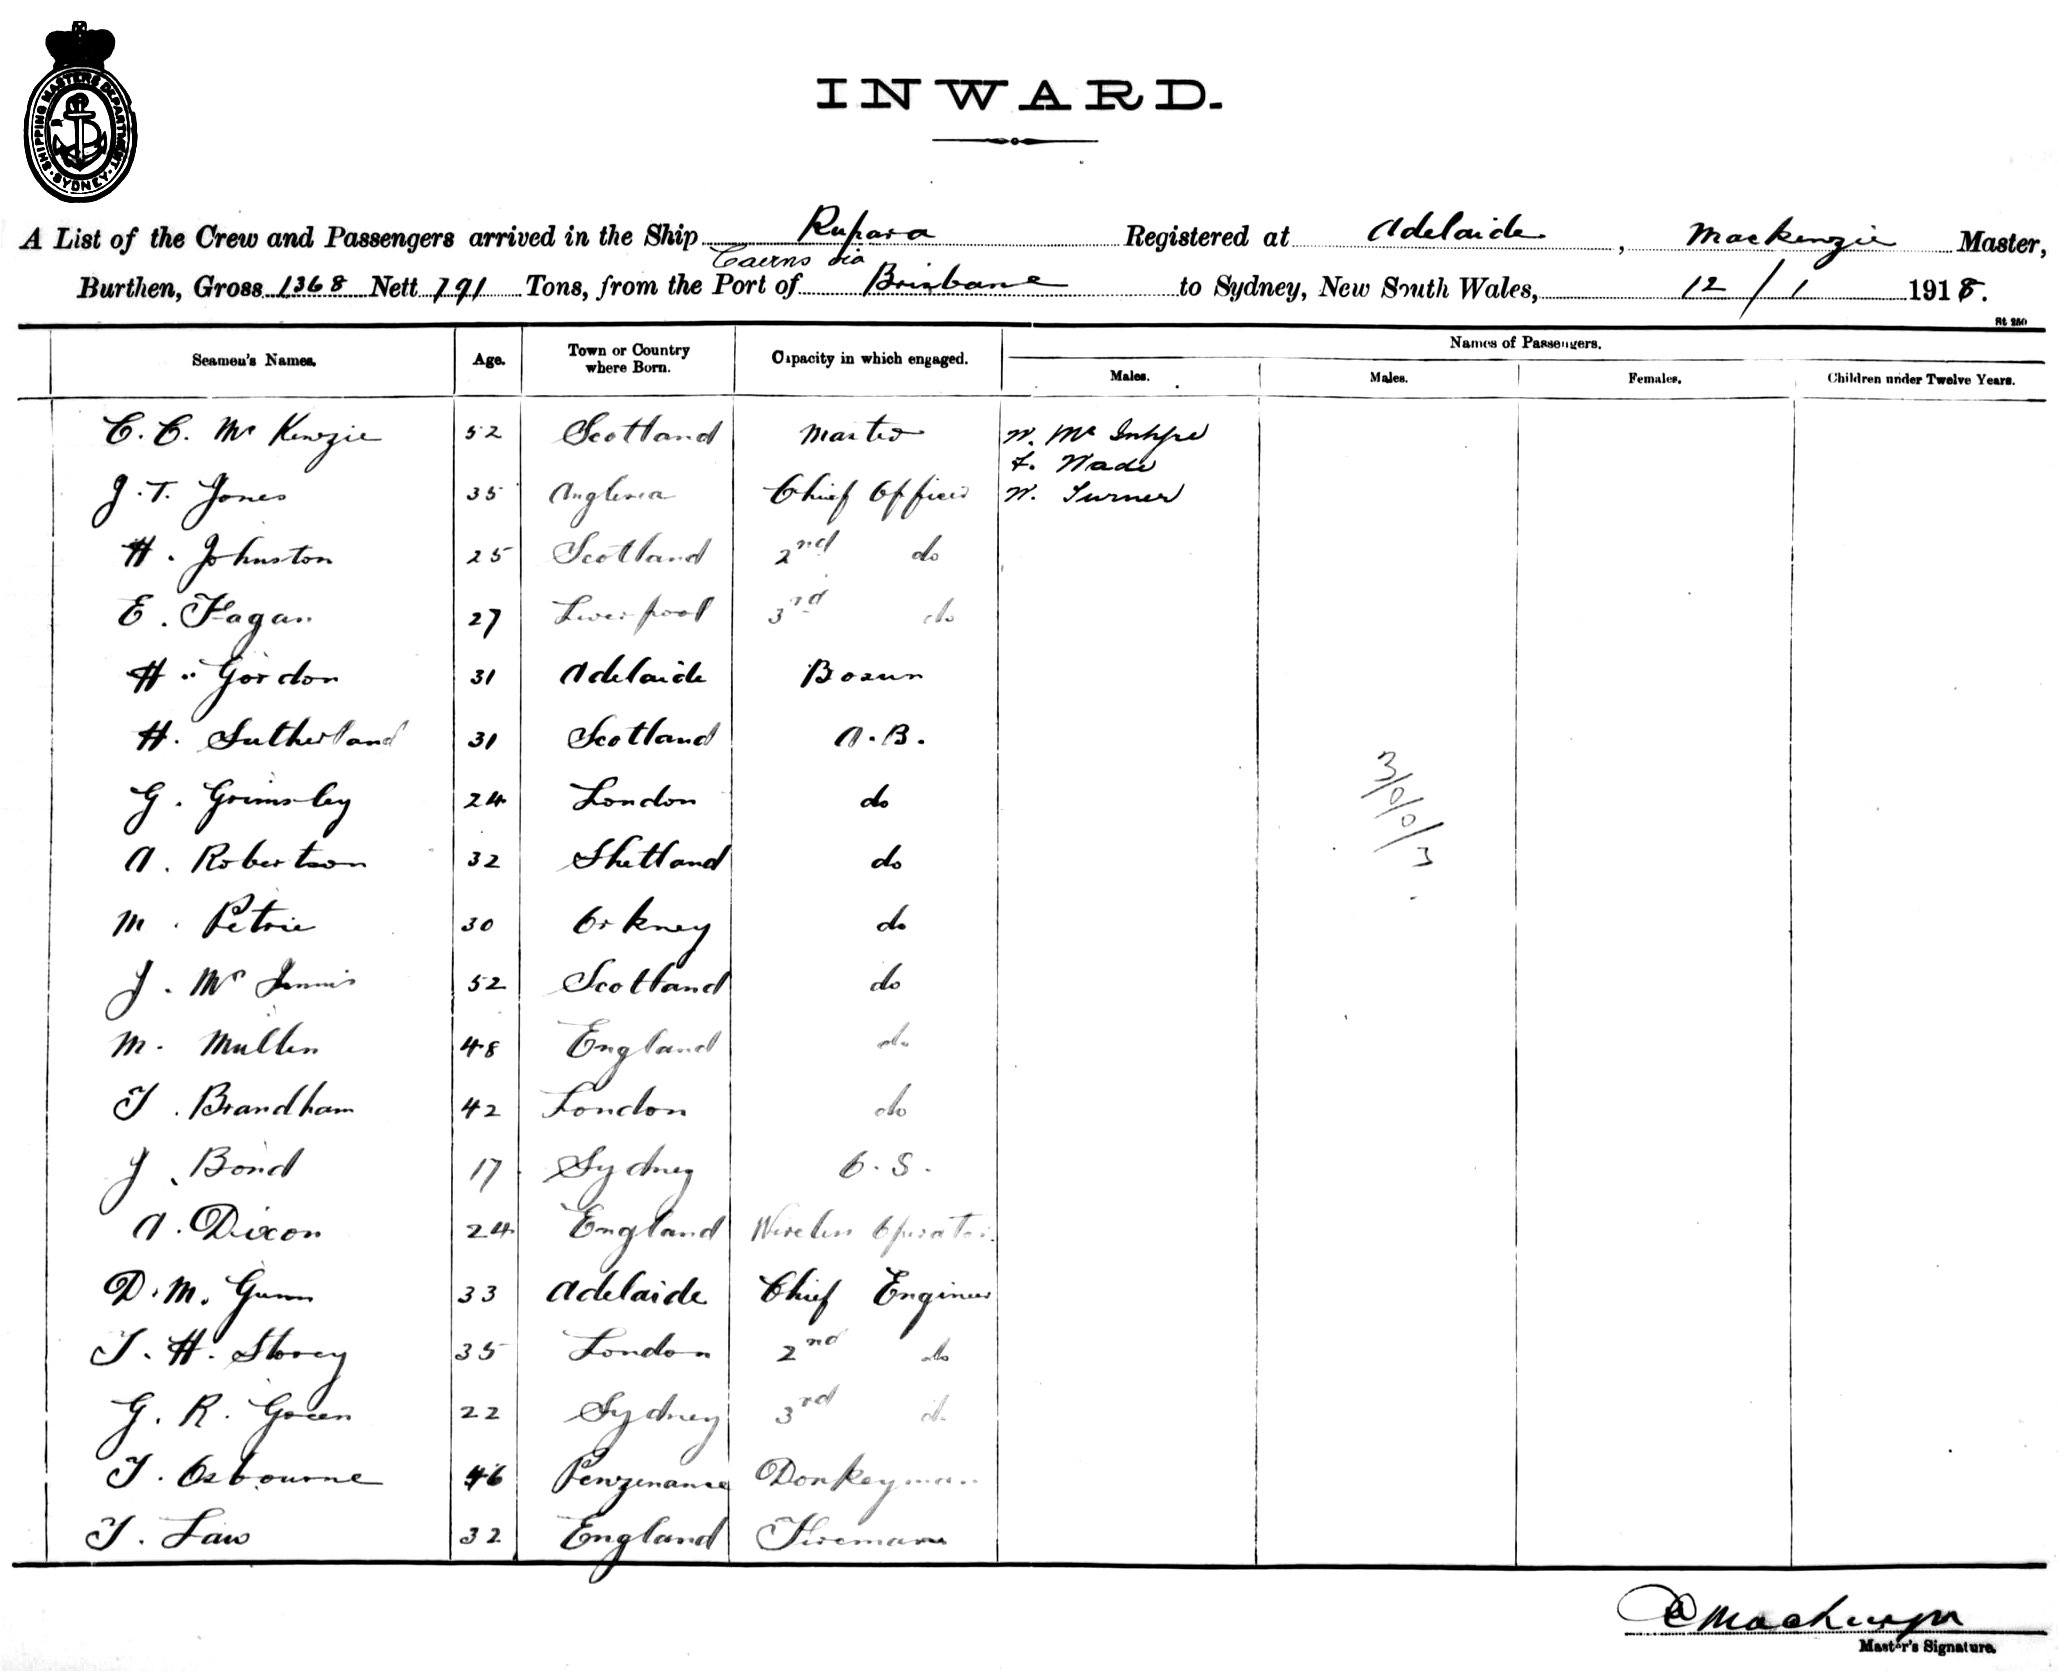 SHIPPING MASTERS DEPARTMENT
SYDNEY
INWARD.
A List of the Crew and Passengers arrived in the Ship Rupara Registered at Adelaide, Mackenzie Master,
Cairns via
Burthen, Gross 1368 Nett 791 Tons, from the Port of Brisbane to Sydney, New South Wales, 12/1 1918.
St 280
Seamen's Names. Age. Town or Country where Born. Capacity in which engaged. Names of Passengers.
Males. Males. Females. Children under Twelve Years.
C. C. McKenzie 52 Scotland Master W. Mc
F. Wade
J. T. Jones 35 Anglesea Chief Officer W. Turner
H. Johnston 25 Scotland 2nd do
E. Fagan 27 Liverpool 3rd do
H. Gordon 31 Adelaide Bosun
H. Sutherland 31 Scotland A.B.
G. Grimsley 24 London do
A. Robertson 32 Shetland do
M. Petrie 30 Orkney do
J. Mc Innis 52 Scotland do
M. Mullen 48 England do
T. Brandham 42 London do
J. Bond 17 Sydney O.S.
A. Dixon 24 England Wireless Operator
D. M. Gunn 33 Adelaide Chief Engineer
T. H. Storey 35 London 2nd do
G. R. Green 22 Sydney 3rd do
T. Osbourne 46 Penzenance Donkeyman
T. Law 32 England Fireman
3/0/0/3
C Mackenzie
Master's Signature.